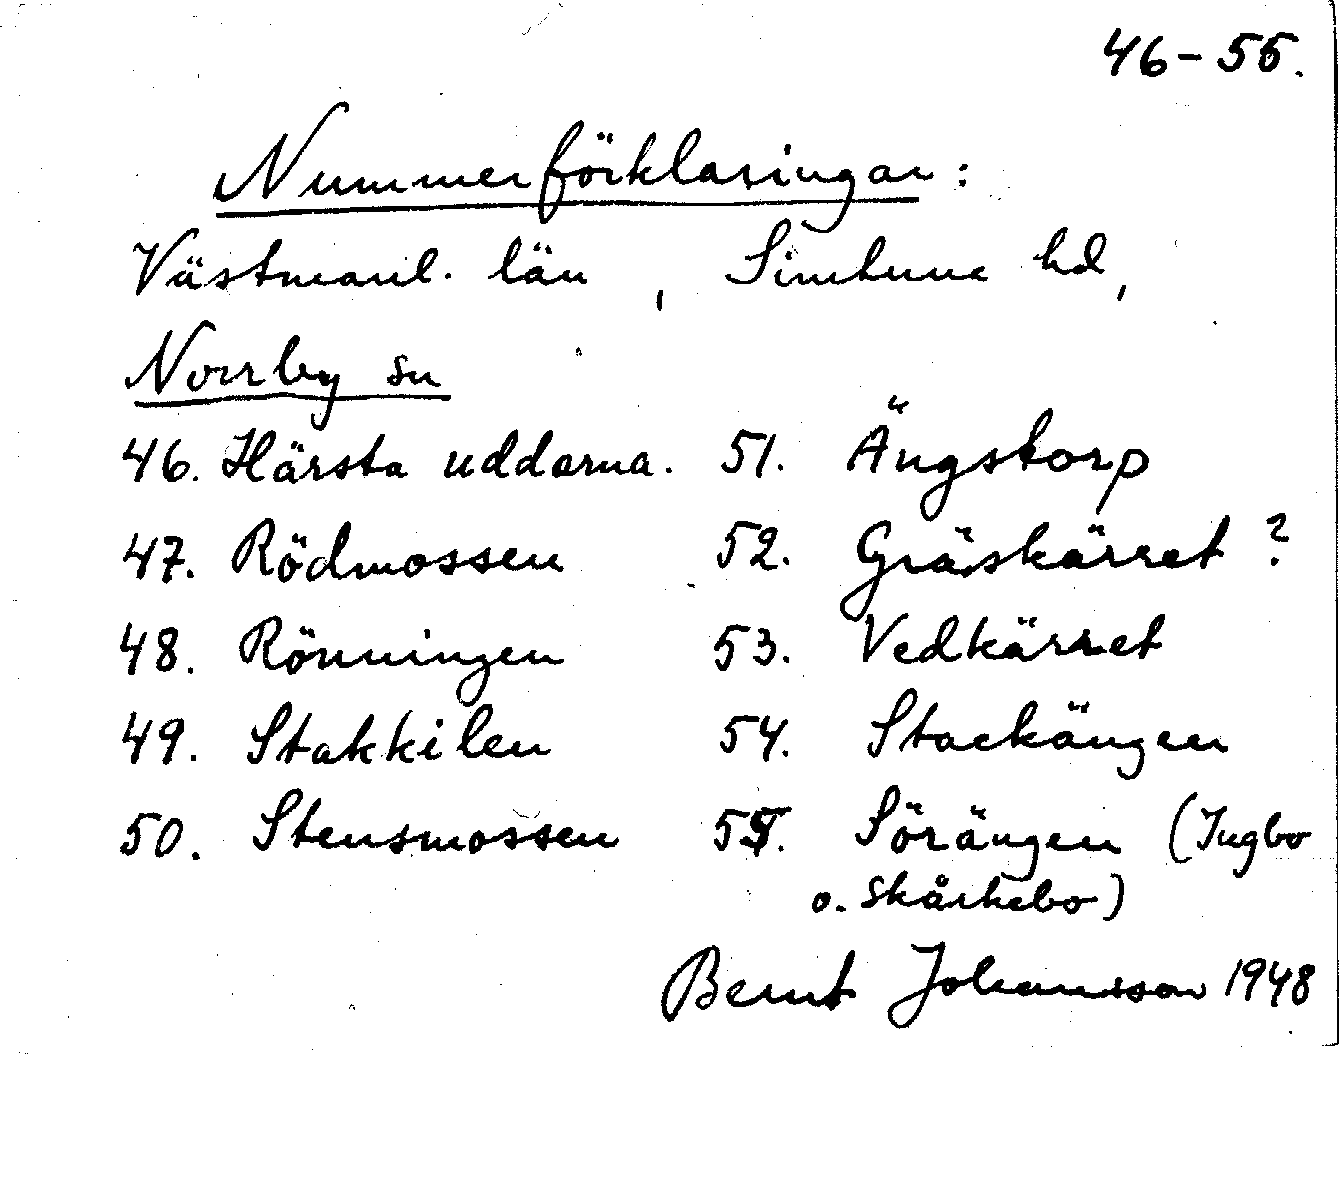 46-55.
Nummerförklaringar:
Västmanl. län, Simtuna hd,
Norrby sn
46. Härsta uddarna. 51. Ängstorp
47. Rödmossen 52. Gräskärret?
48. Rönningen 53. Vedkärret
49. Stakkilen 54. Stackängen
50. Stensmossen 55. Sörängen (Ingbo
o. Skärkebo)
Bernt Johansson 1948